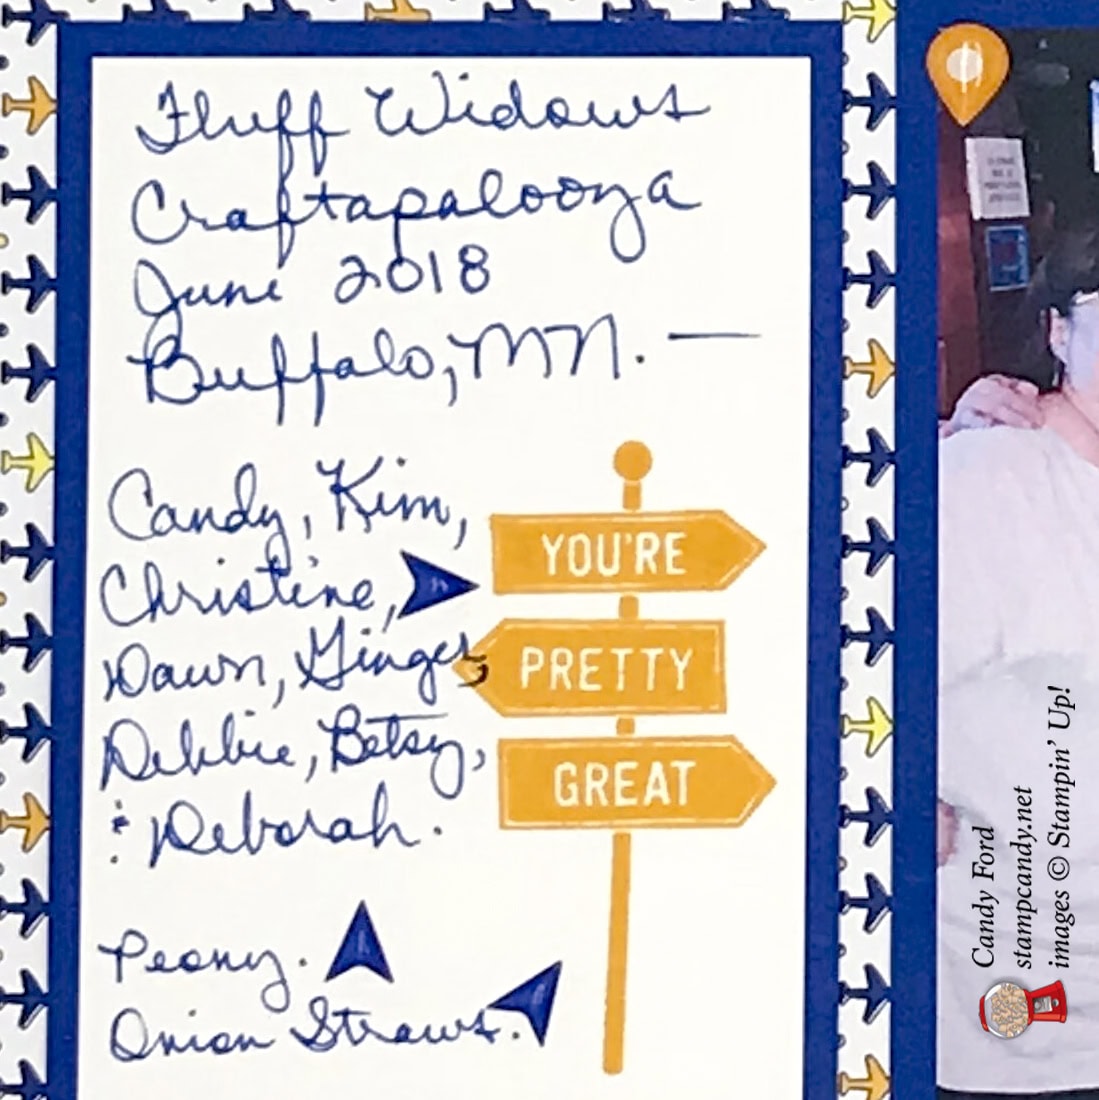 Fluff Widows
Craftapalooza
June 2018
Buffalo, MN. —
Candy, Kim,
Christine,
Dawn, Ginger,
Debbie, Betsy,
& Deborah.
Peony.
Onion Straws.
YOU'RE
PRETTY
GREAT
Candy Ford
stampcandy.net
images © Stampin' Up!